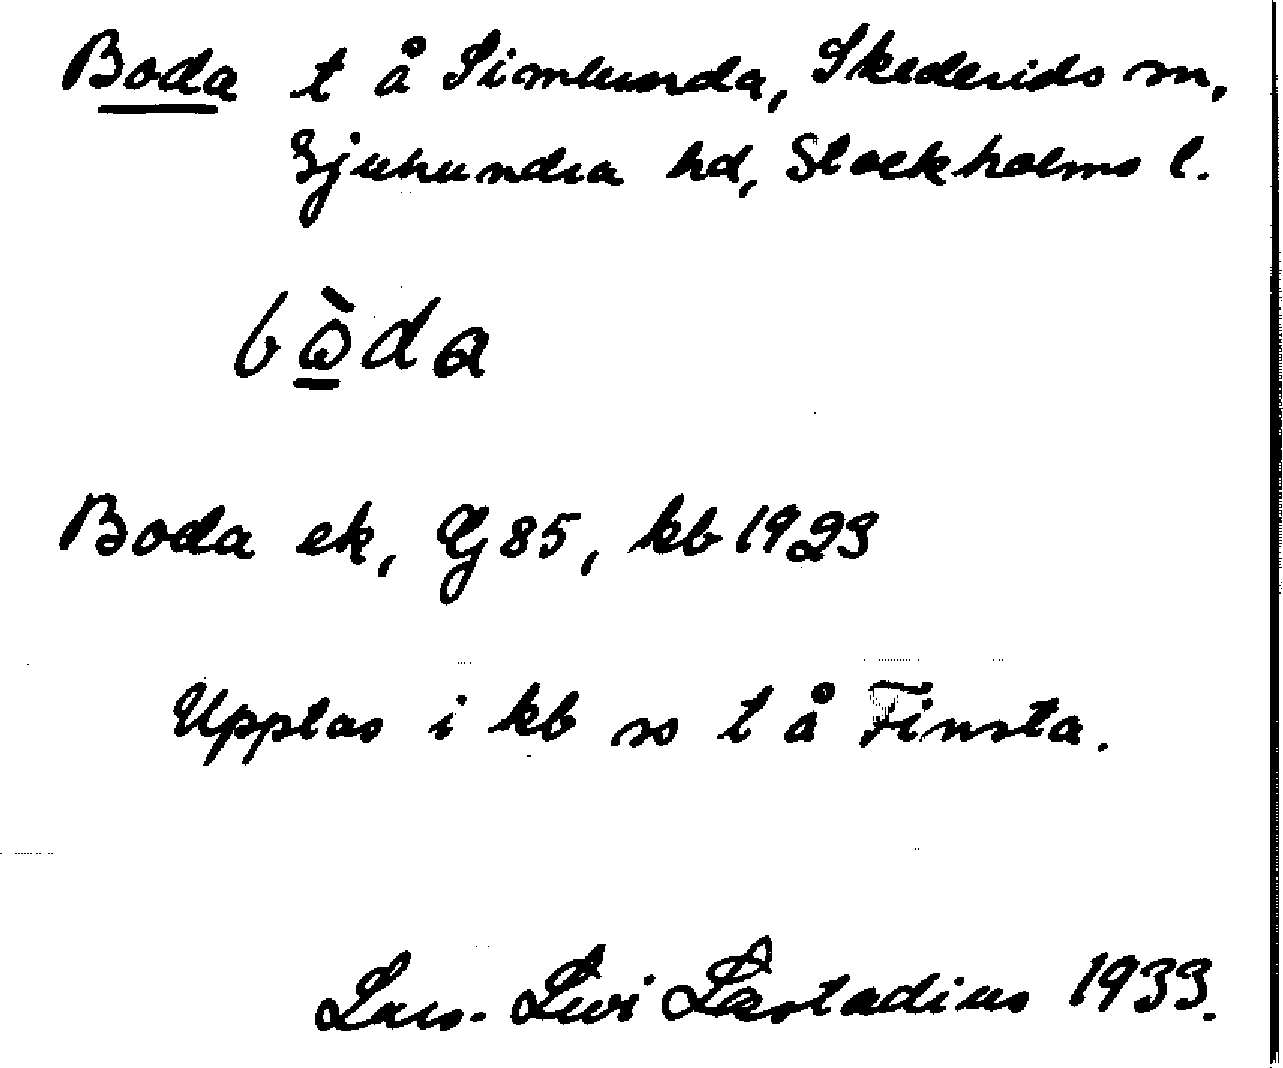 Boda t å Simlunda, Skederids sn,
Sjuhundra hd, Stockholms l.
bò̱da
Boda ek, GJ 85, kb 1923
Upptas i kb ss t å Finsta.
Lars-Levi Læstadius 1933.